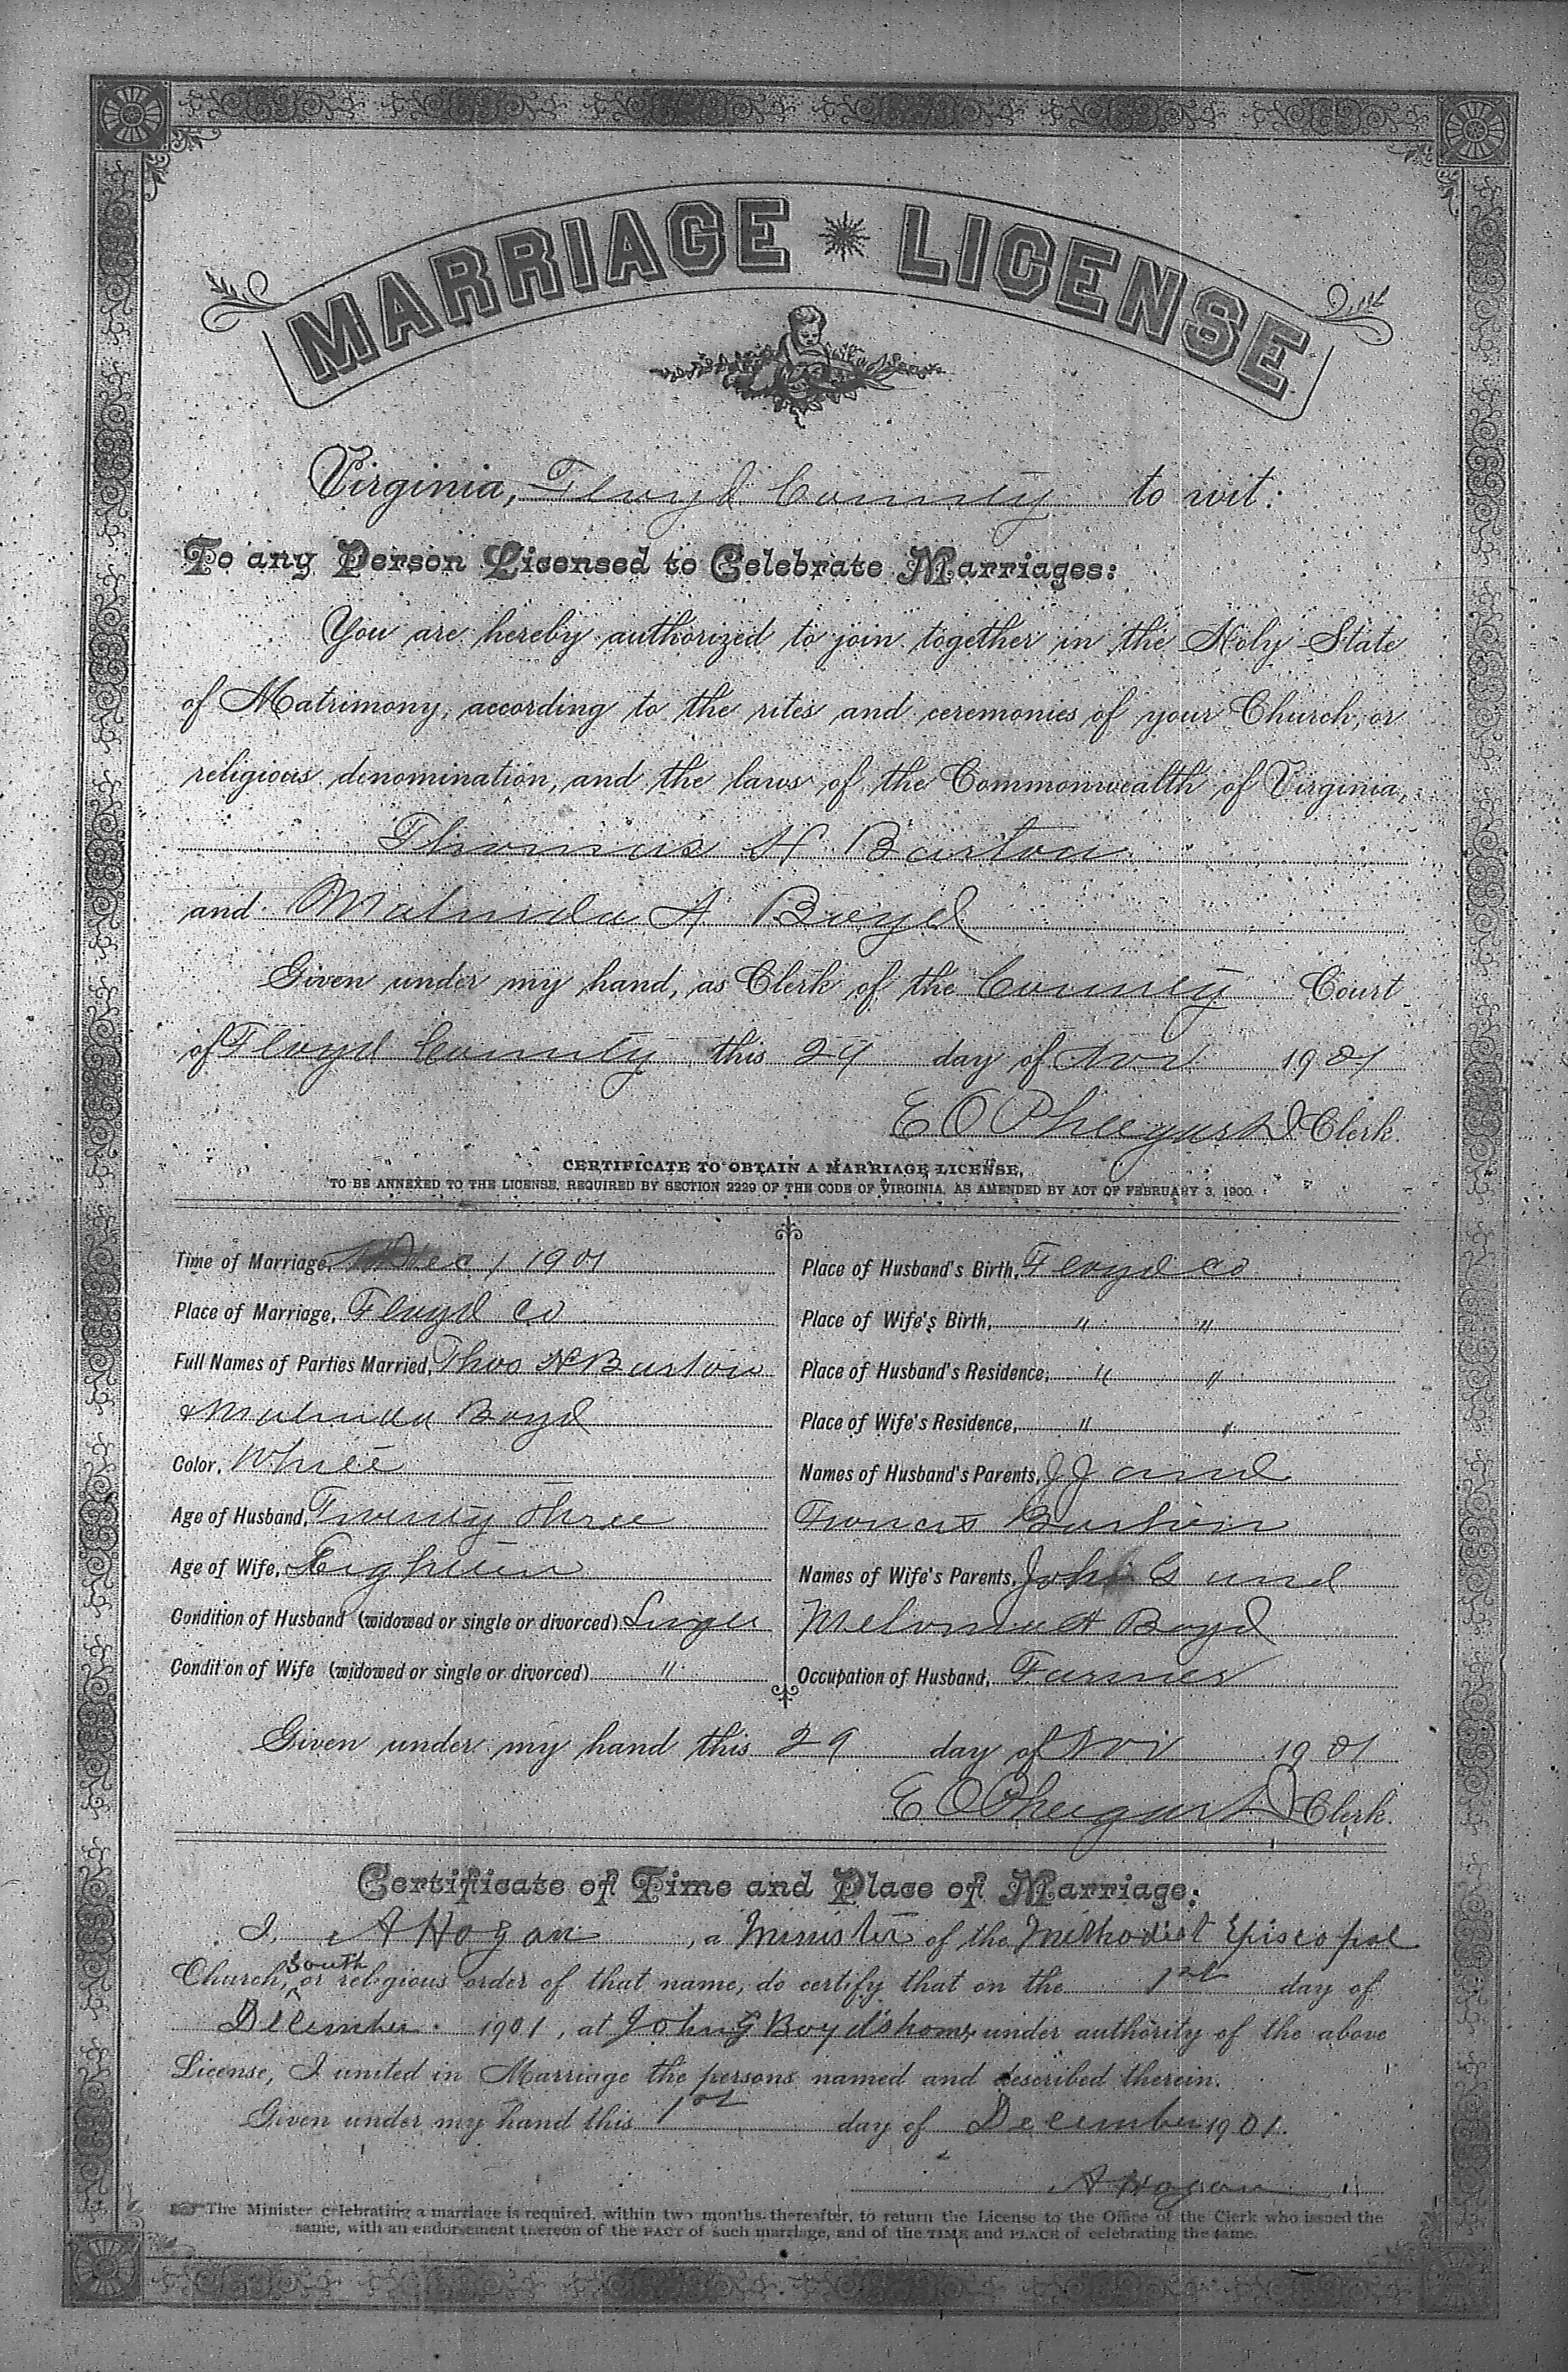 MARRIAGE LICENSE
Virginia, Floyd County to wit:
To any Person Licensed to Celebrate Marriages:
You are hereby authorized to join together in the Holy State
of Matrimony, according to the rites and ceremonies of your Church, or
religious denomination, and the laws of the Commonwealth of Virginia,
Thomas H Burton
and Malinda A Boyd
Given under my hand, as Clerk of the County Court
of Floyd County this 29 day of Nov 1901
E O Clerk.
CERTIFICATE TO OBTAIN A MARRIAGE LICENSE,
TO BE ANNEXED TO THE LICENSE, REQUIRED BY SECTION 2229 OF THE CODE OF VIRGINIA, AS AMENDED BY ACT OF FEBRUARY 3, 1900.
Time of Marriage, Dec 1 1901
Place of Marriage, Floyd Co
Full Names of Parties Married, Thos H Burton
& Malinda Boyd
Color, White
Age of Husband, Twenty three
Age of Wife, Eighteen
Condition of Husband (widowed or single or divorced) Single
Condition of Wife (widowed or single or divorced) "
Place of Husband's Birth, Floyd Co
Place of Wife's Birth, " "
Place of Husband's Residence, " "
Place of Wife's Residence, " "
Names of Husband's Parents, JJ and
Francis Burton
Names of Wife's Parents, John G and
A Boyd
Occupation of Husband, Farmer
Given under my hand this 29 day of Nov 1901
E O Clerk.
Certificate of Time and Place of Marriage:
I, A Hogan, a Minister of the Methodist Episcopal
South
Church, or religious order of that name, do certify that on the 1st day of
December 1901, at John G Boyd's home, under authority of the above
License, I united in Marriage the persons named and described therein.
Given under my hand this 1st day of December 1901.
A Hogan
The Minister celebrating a marriage is required, within two months thereafter, to return the License to the Office of the Clerk who issued the
same, with an endorsement thereon of the FACT of such marriage, and of the TIME and PLACE of celebrating the same.